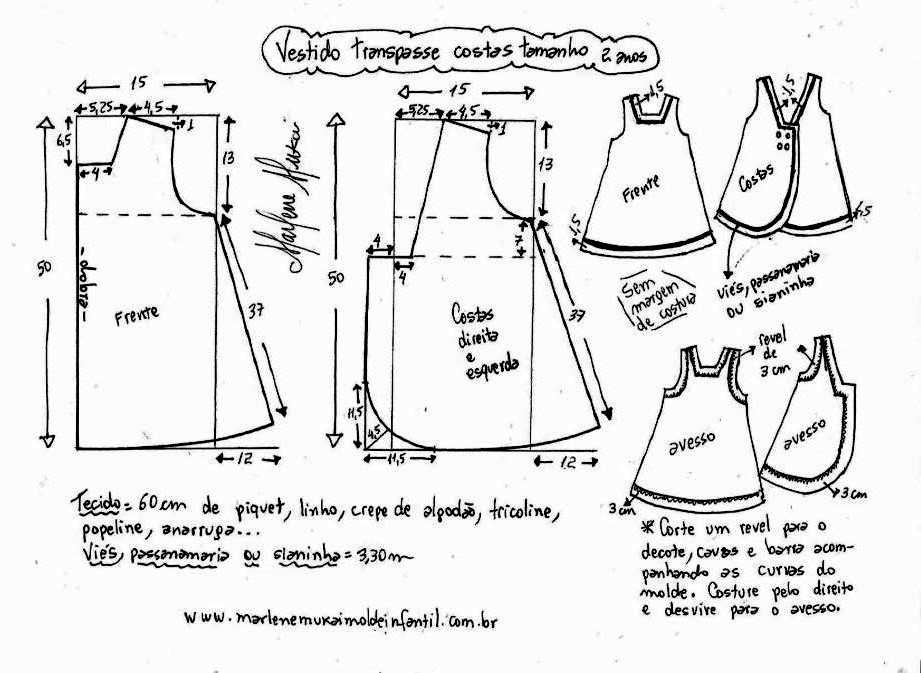 Vestido transpasse costas tamanho 2 anos
15
5,25 4,5
1
6,5
4
13
50
-dobra-
Frente
37
12
Marlene Mukai
15
5,25 4,5
1
13
50
4
4
7
Costas
direita
e
esquerda
37
11,5
4,5
11,5
12
1,5
Frente
1,5
1,5
Costas
1,5
viés, passanamaria
ou sianinha
Sem
margem
de costura
revel
de
3 cm
avesso
avesso
3 cm
3 cm
Tecido = 60 cm de piquet, linho, crepe de algodão, tricoline,
popeline, anarruga...
Viés, passanamaria ou sianinha = 3,30 m
* Corte um revel para o
decote, cavas e barra acom-
panhando as curvas do
molde. Costure pelo direito
e desvire para o avesso.
www.marlenemukaimoldeinfantil.com.br